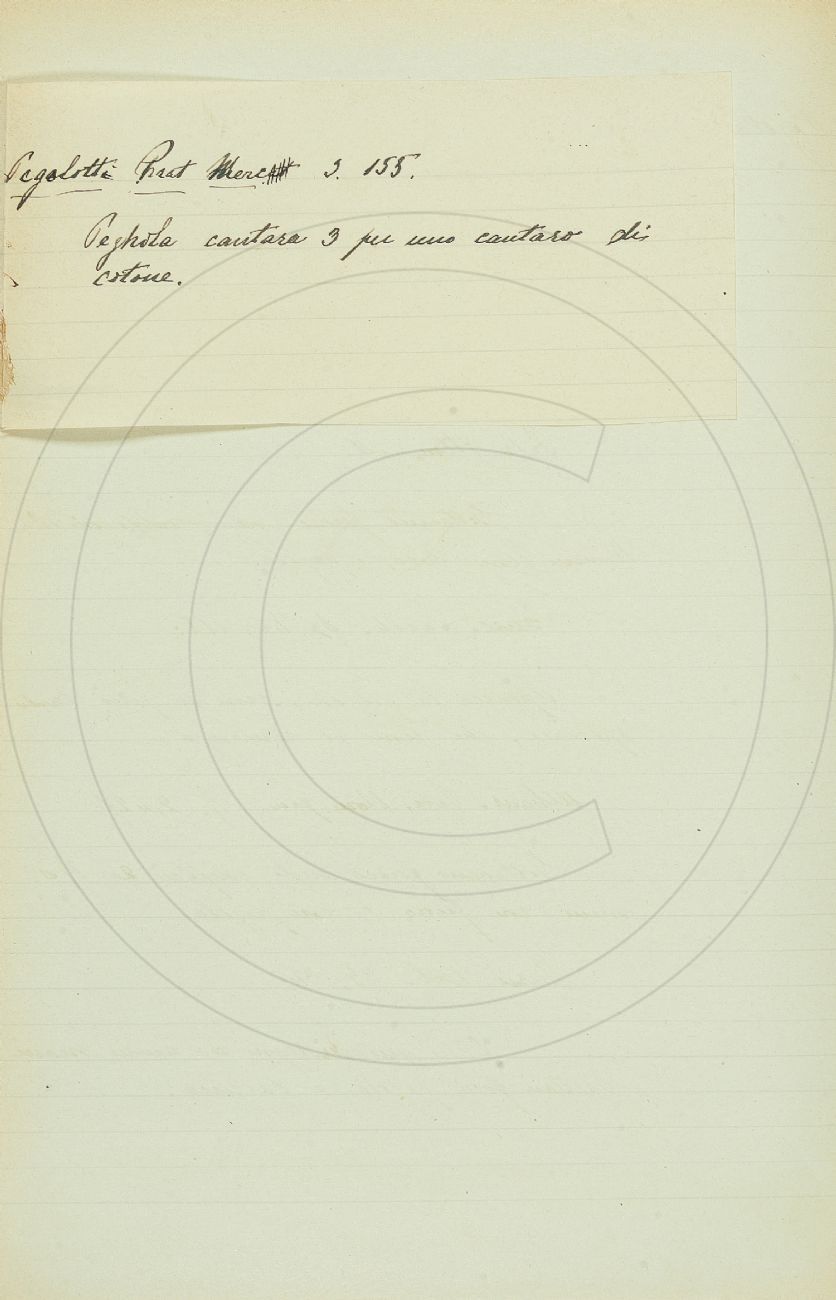 Pegolotti Prat Merc 3. 155.
Peghola cantara 3 per uno cantaro di
cotone.